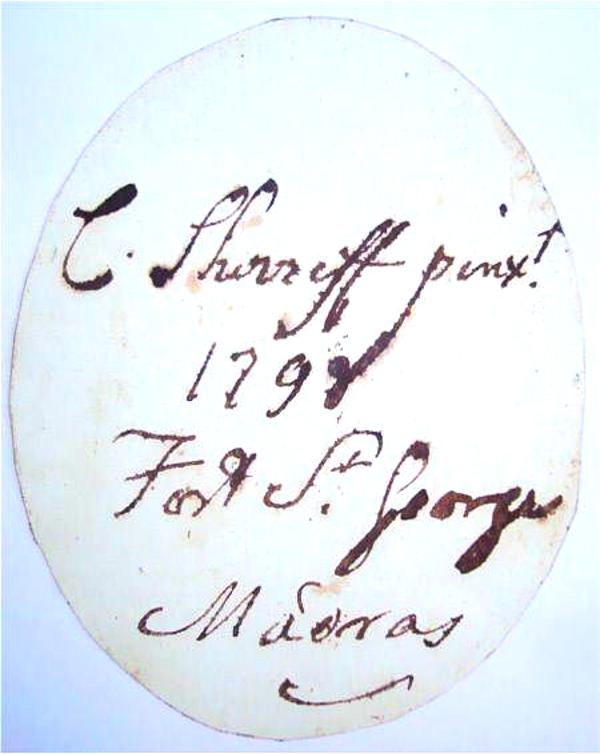 C. Sherriff pinxt.
1798
Fort St. George
Madras